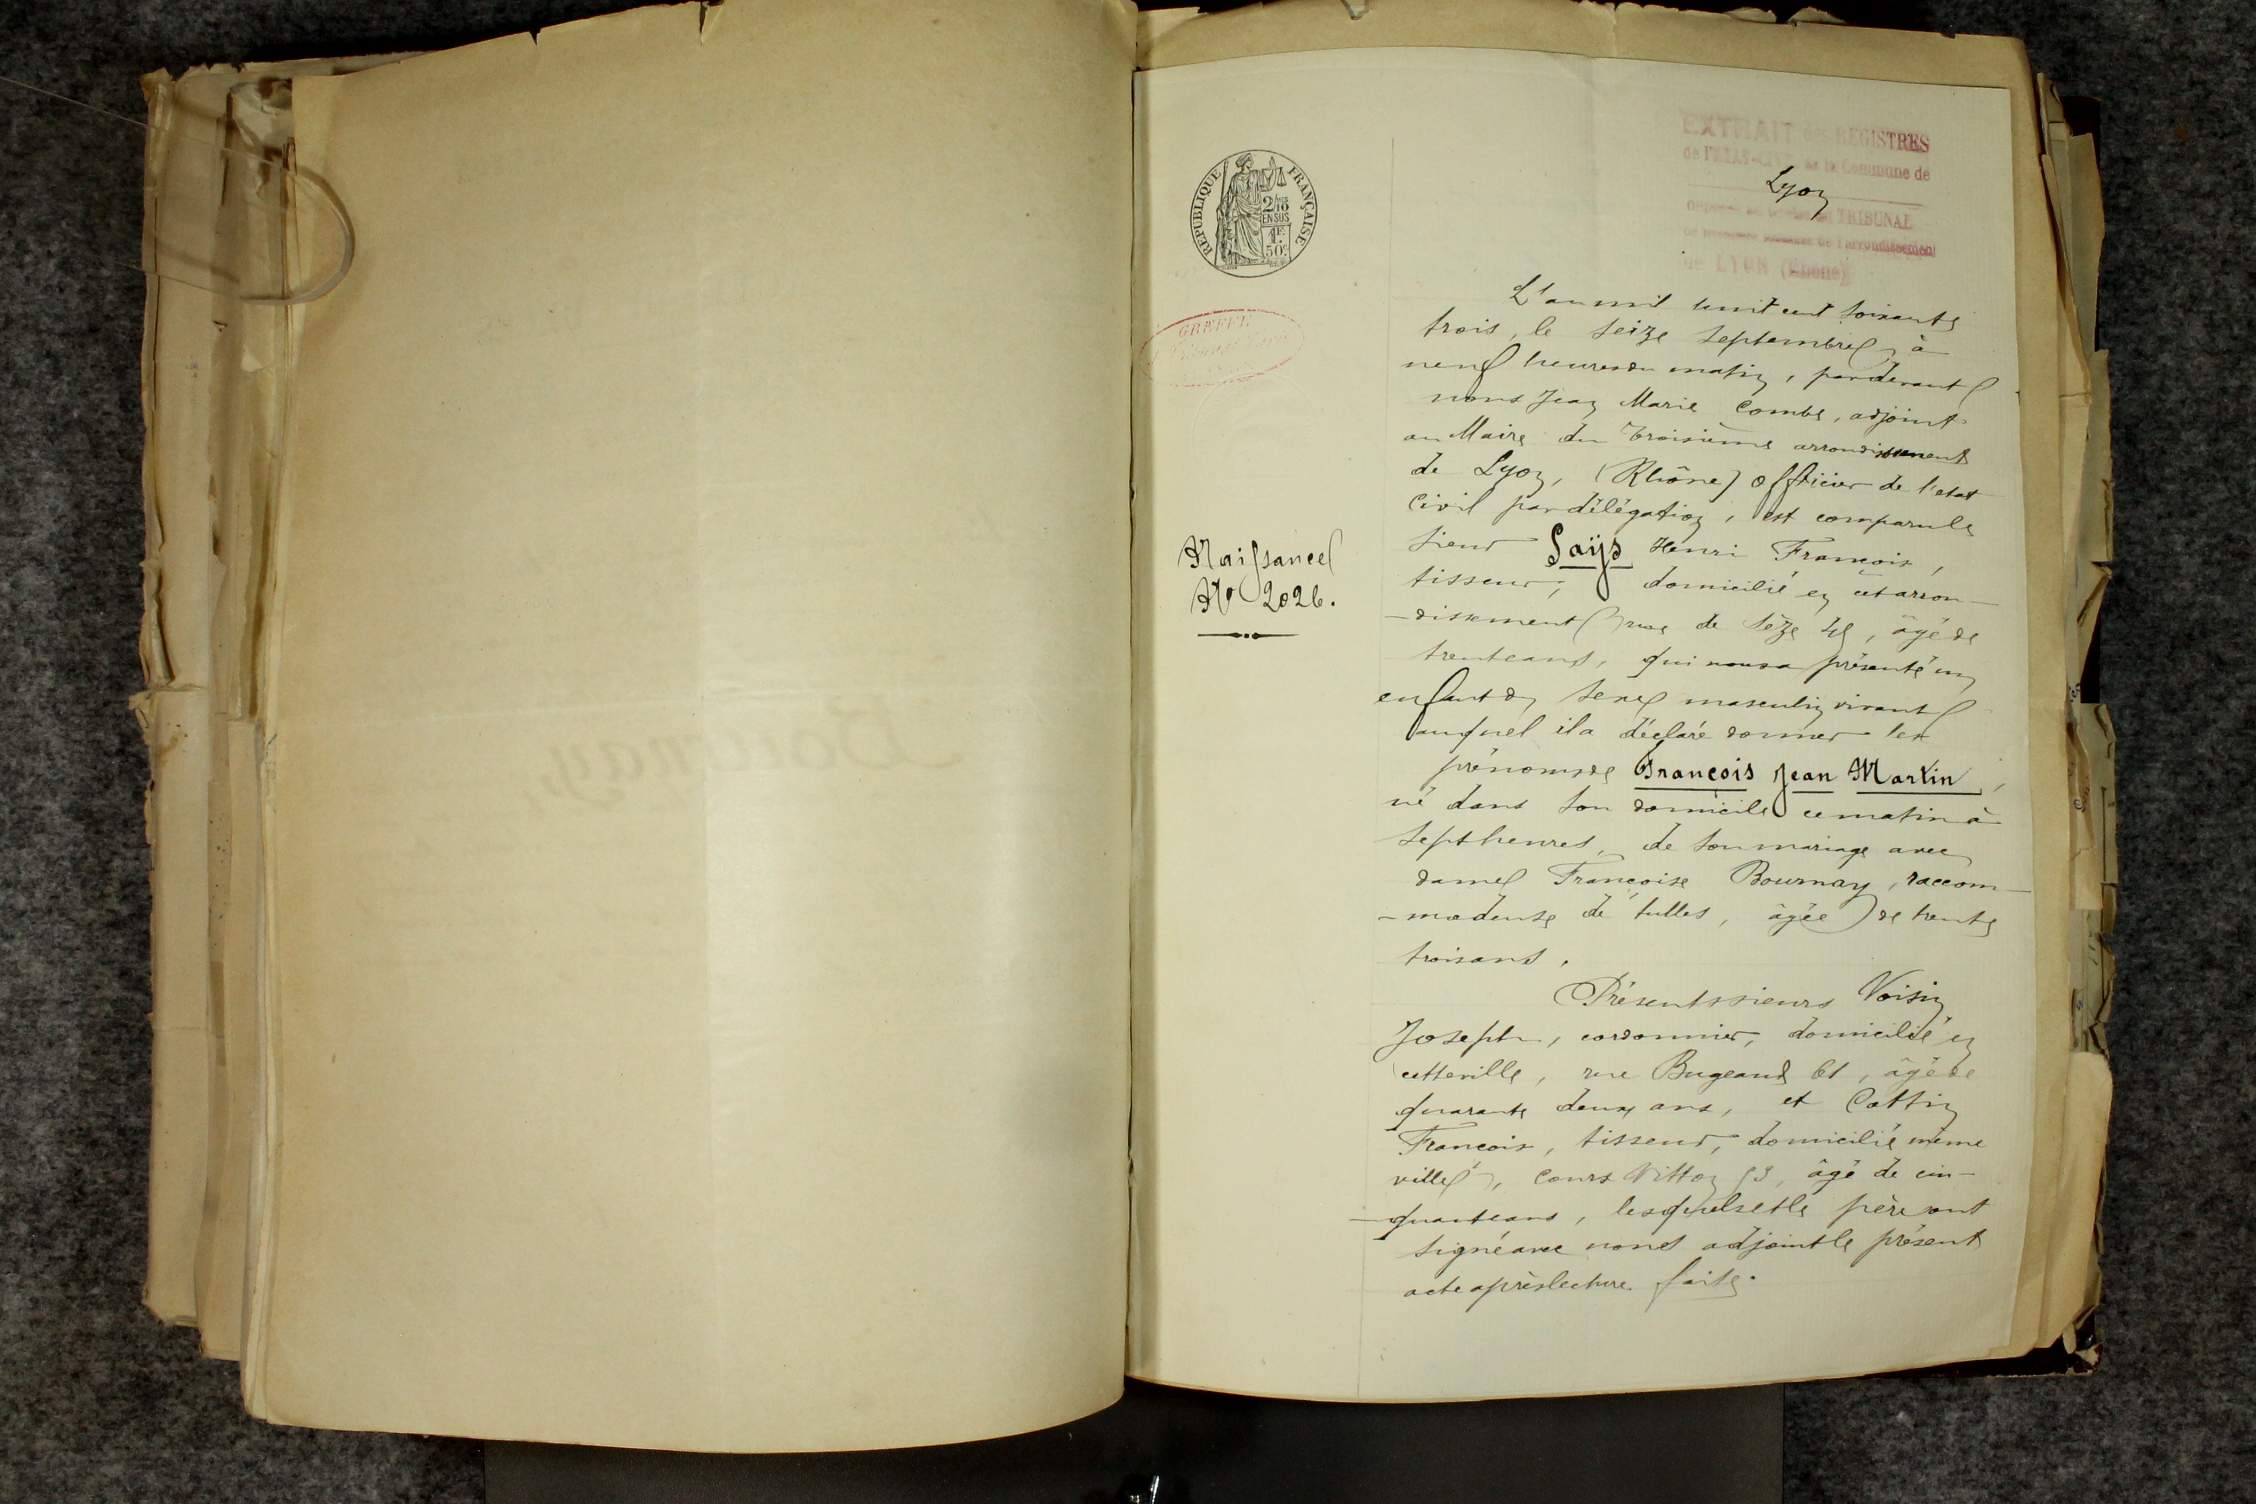 EXTRAIT des REGISTRES
de l'ETAT-CIVIL de la Commune de
Lyon
TRIBUNAL
de l'arrondissement
de LYON (Rhône)
REPUBLIQUE FRANÇAISE
2/10
EN SUS
1F
50c
GREFFE
L'an mil huit cent soixante
trois, le seize septembre, à
neuf heures du matin, par devant
nous Jean Marie Combe, adjoint
au Maire du troisième arrondissement
de Lyon, (Rhône) officier de l'etat
Civil par délégation, est comparu le
sieur Saÿs Henri François,
tisseur, domicilié en cet arron-
-dissement, rue de Sèze, âgé de
trente ans, qui nous a présenté un
enfant du sexe masculin vivant
auquel il a déclaré donner les
prénoms de François Jean Martin,
né dans son domicile ce matin à
sept heures, de son mariage avec
dame Françoise Bournay, raccom-
-modeuse de tulles, âgée de trente
trois ans.
Naissance
No 2026.
Présents sieurs Voisin
Joseph, cordonnier, domicilié en
cette ville, rue Bugeaud 61, âgé de
quarante deux ans, et Cottin
François, tisseur, domicilié même
ville, Cours Vitton 53, âgé de cin-
-quante ans, lesquels et le père ont
signé avec nous adjoint le présent
acte après lecture faite.
Bournay,